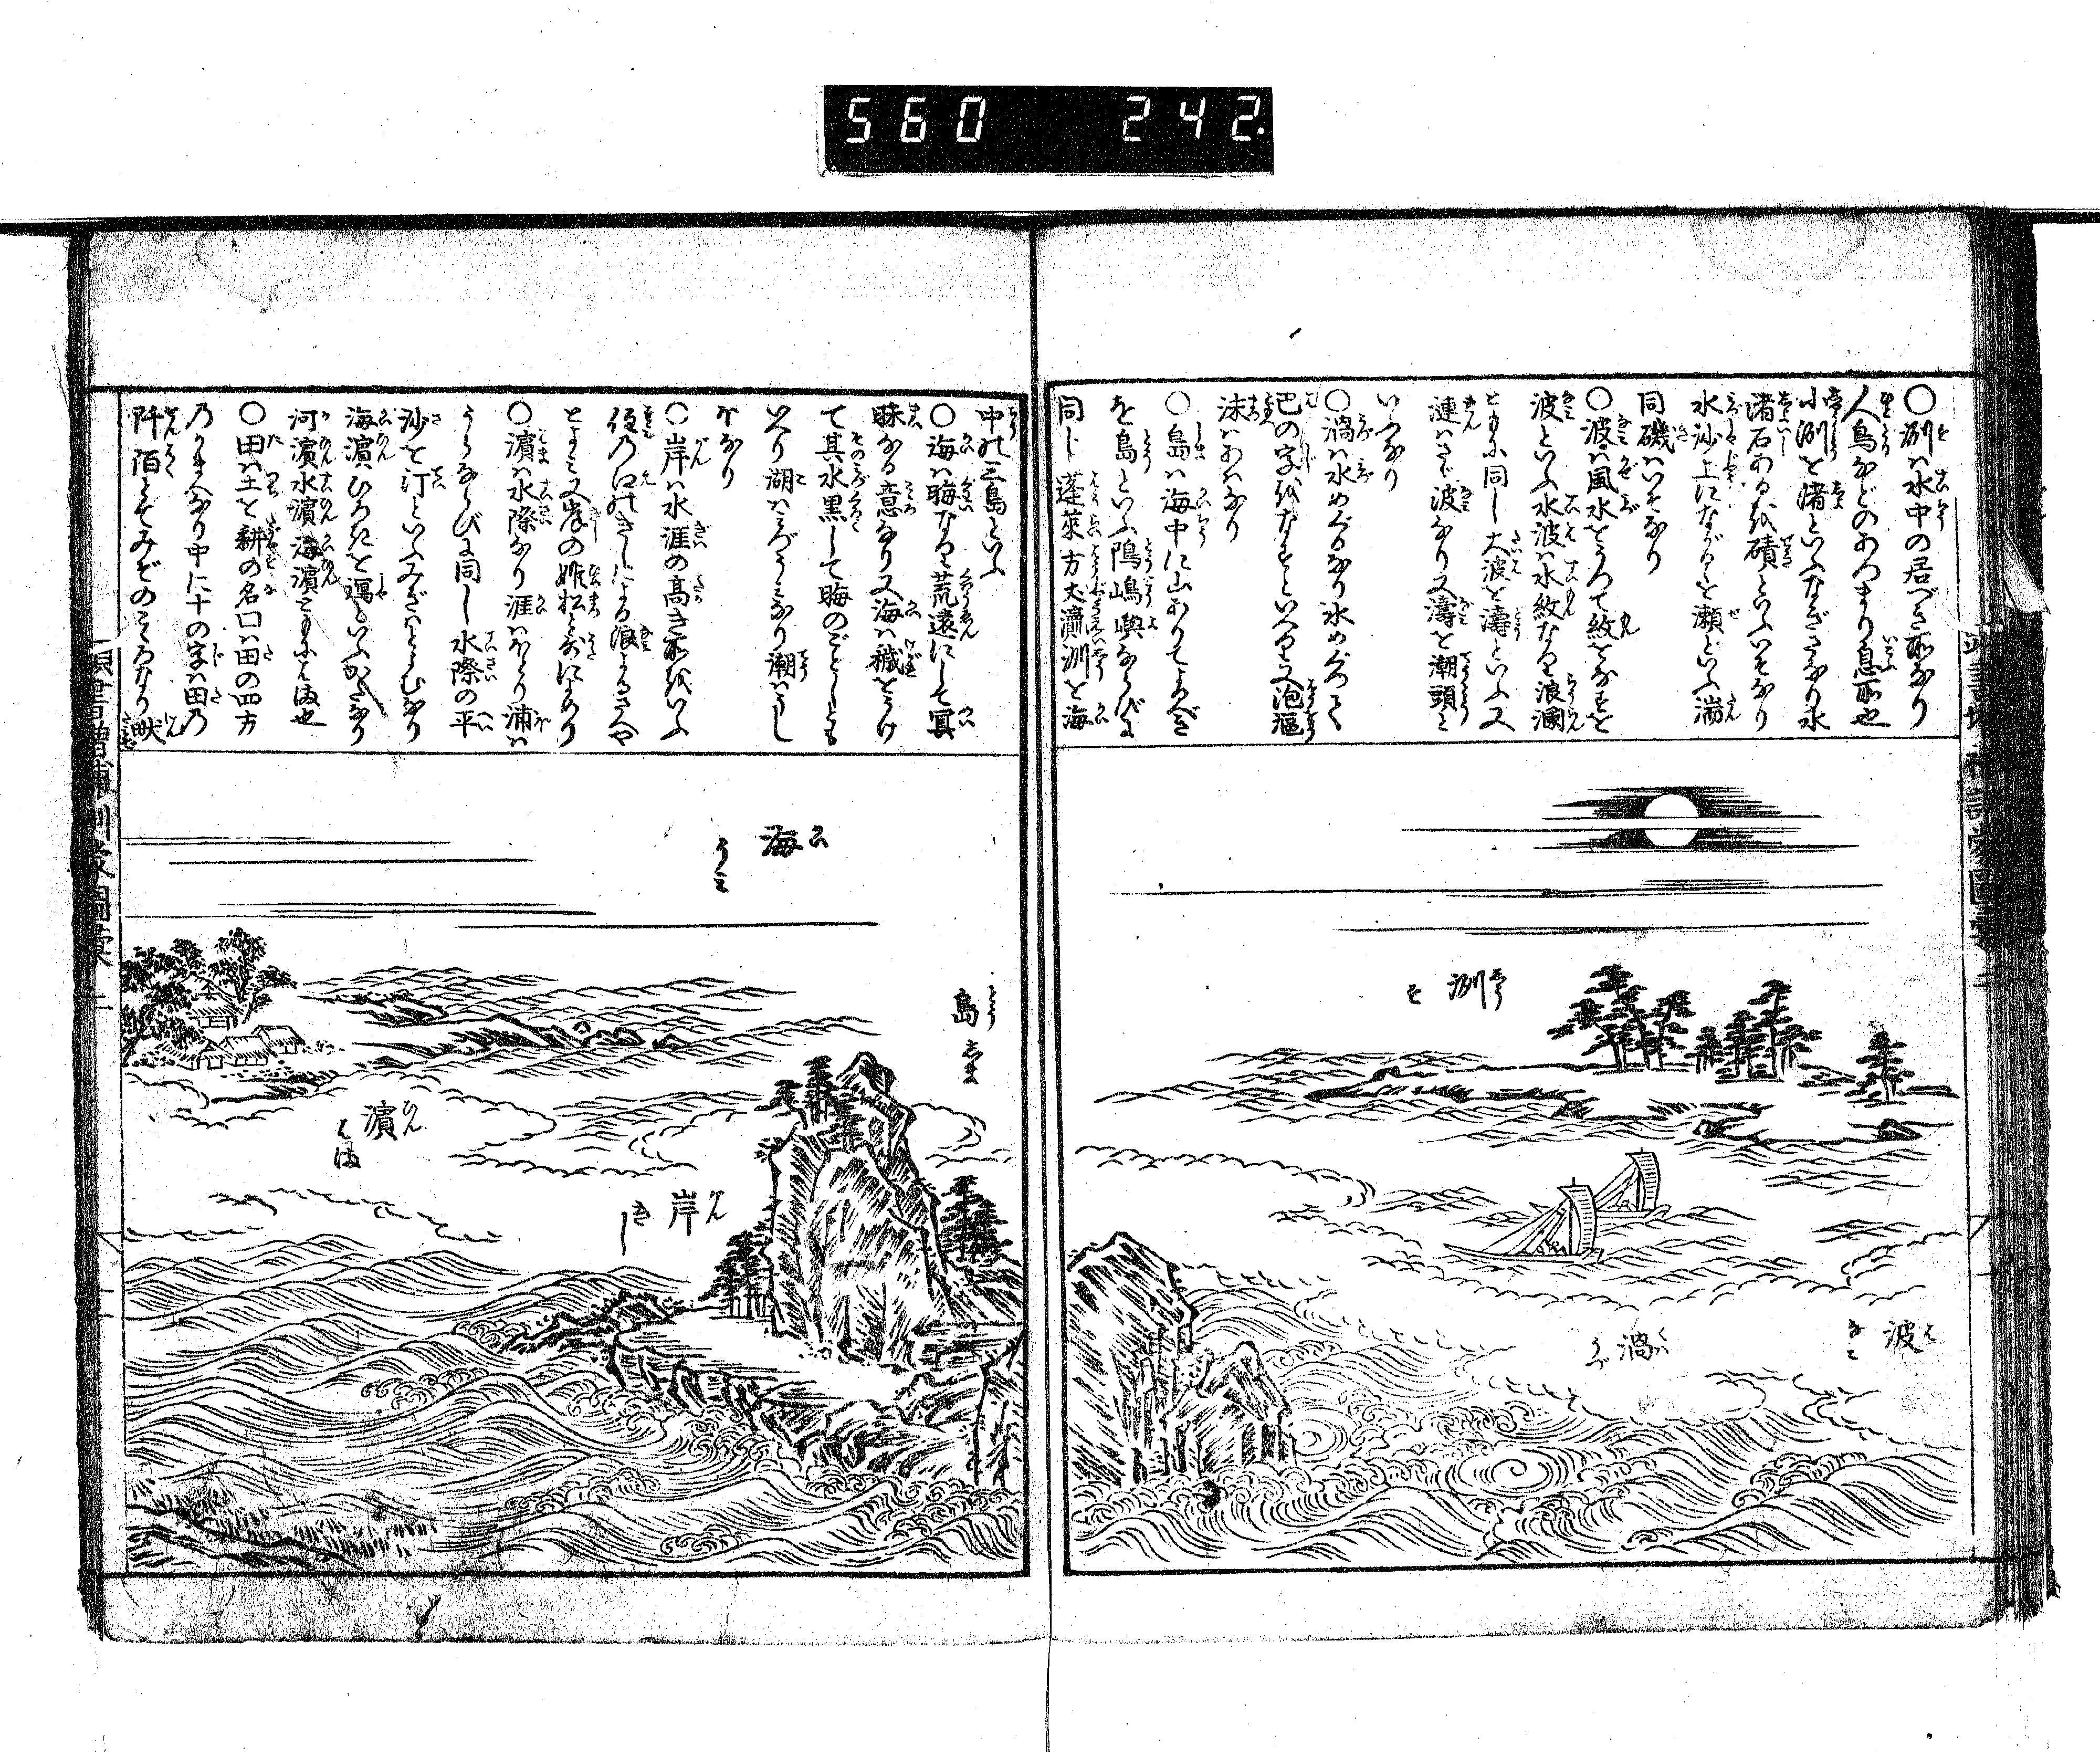 560 242
〇洲ハ水中の居べき所なり
人鳥などのあつまり息所也
小洲を渚といふなぎさなり水
渚石ある を磧といふいそなり
水沙上にながるを瀬といふ湍
同磯ハいそなり
〇波ハ風水をうつて紋をなすを
波といふ水波ハ水紋なり浪瀾
ともに同し大波を濤といふ又
漣ハさゞ波なり又濤を潮頭と
いふなり
〇渦ハ水めぐるなり水めぐつて
巴の字をなすといへり又泡漚
沫ハあハなり
〇島ハ海中に山ありてよるべき
を島といふ隝嶋嶼ならびに
同じ蓬萊方丈瀛洲を海
洲 す
波 なみ
渦 うづ
中の三島といふ
〇海ハ晦なり荒遠にして冥
昧なる意なり又海ハ穢をうけ
て其水黒して晦のごとしとも
いへり湖ハみづうミなり潮ハうし
ほなり
〇岸ハ水涯の高き所をいふ
住乃江のきしによる浪よるさへや
とよミ又岸の姫松とよめり
〇濱ハ水際なり涯ハほとり浦ハ
うらならびに同し水際の平
沙を汀といふみぎハともいふなり
海濱ひろきを潟といふかたなり
河濱水濱海濱ともにはま也
〇田ハ土を耕の名口ハ田の四方
乃かまへなり中に十の字ハ田乃
阡陌とてみぞのこころなり畎
海 うミ
島 しま
濱 はま
岸 きし
頭書増補訓蒙圖彙